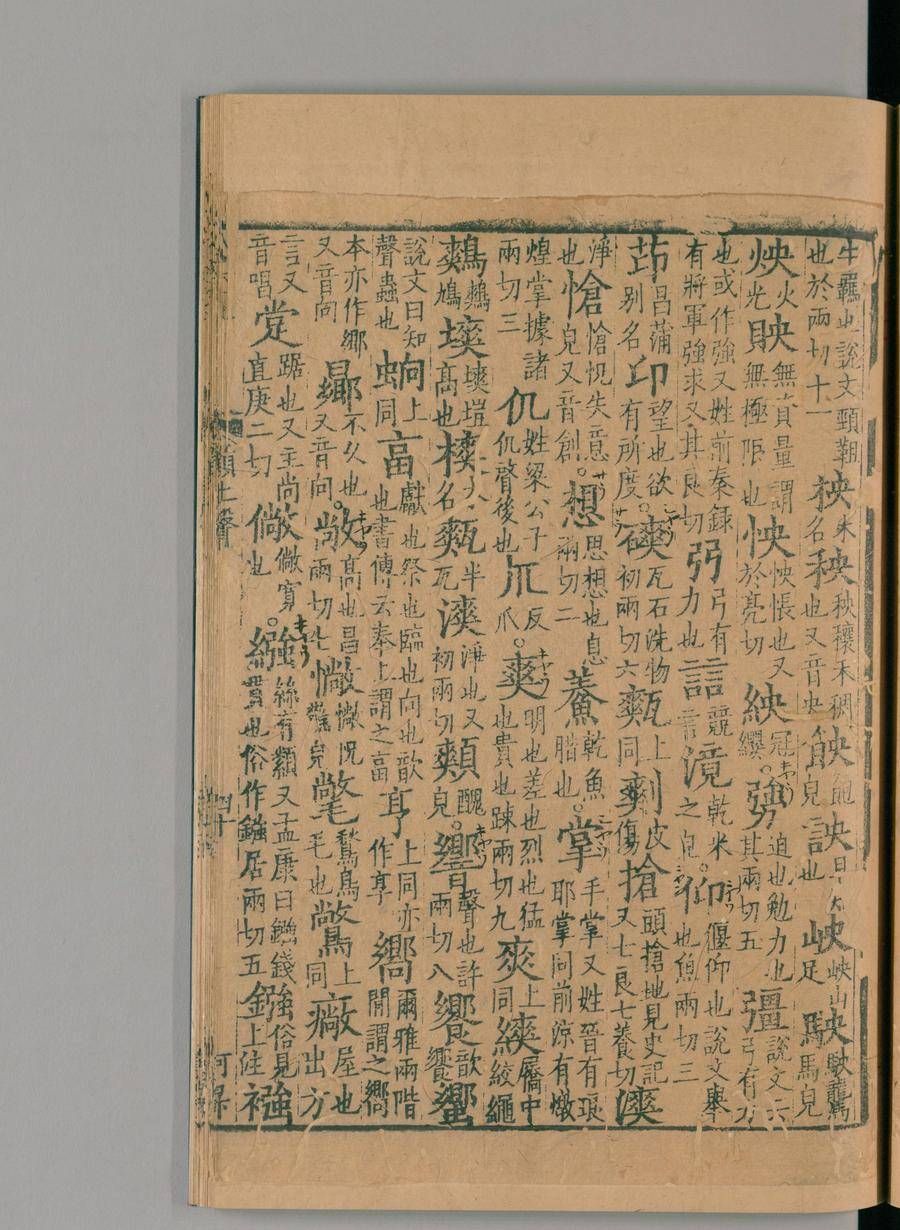 牛羈也說文頸靼也於兩切十一柍木名秧秧穰禾稠也又音央䬬飽皃詇早知也岟岟山足駚駚䮾馬皃
炴火光無貲量謂無極限也怏怏悵也又於亮切紻冠纓勥迫也勉力也其兩切五彊說文云弓有力
也或作強又姓前秦錄有將軍強求又其良切弜弓有力也誩競言滰乾米之皃仰偃仰也說文舉也魚兩切三
茚昌蒲別名卬望也欲有所度磢瓦石洗物初兩切六㼽上同㓽皮傷搶頭搶地見史記又七良七養切漺
淨也愴愴怳失意皃又音創想思想也息兩切二鯗乾魚腊也掌手掌又姓晉有琅耶掌同前涼有燉
煌掌據諸兩切三仉姓梁公子仉䏿後也𠃨反爪爽明也差也烈也猛也貴也踈兩切九上同䌮屩中絞繩
鷞鷞鳩塽塽塏高也樉木名半瓦漺淨也又初兩切䫪醜皃響聲也許兩切八饗歆饗蠁
說文曰知聲蟲也蚼上同亯獻也祭也臨也向也歆也書傳云奉上謂之亯亨上同亦作享嚮爾雅兩階間謂之嚮
本亦作鄉又音向曏不久也又音向敞高也昌兩切七惝惝怳驚皃氅鶖鳥毛也上同廠屋也出方
言又音唱踞也又主尚直庚二切也繈絲有纇又孟康曰錢繈俗見貫也俗作鏹居兩切五鏹上注襁